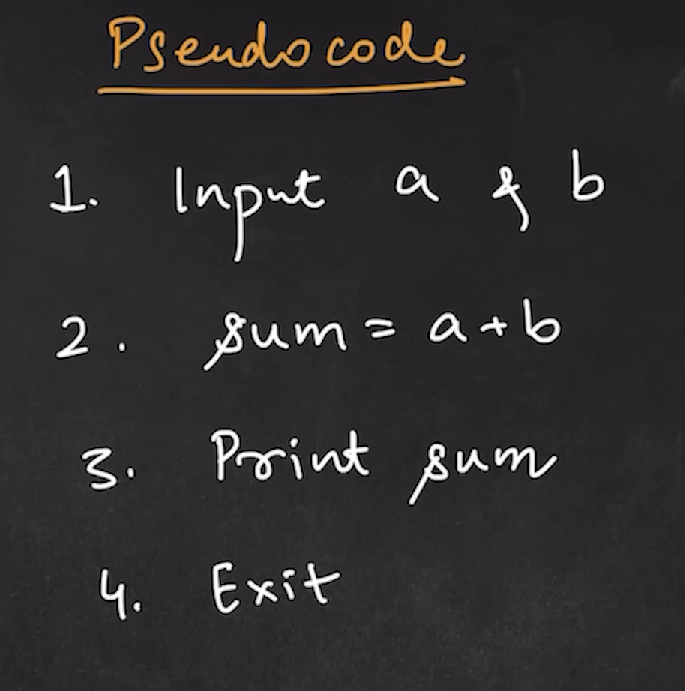 Pseudocode
1. Input a & b
2. sum = a + b
3. Print sum
4. Exit